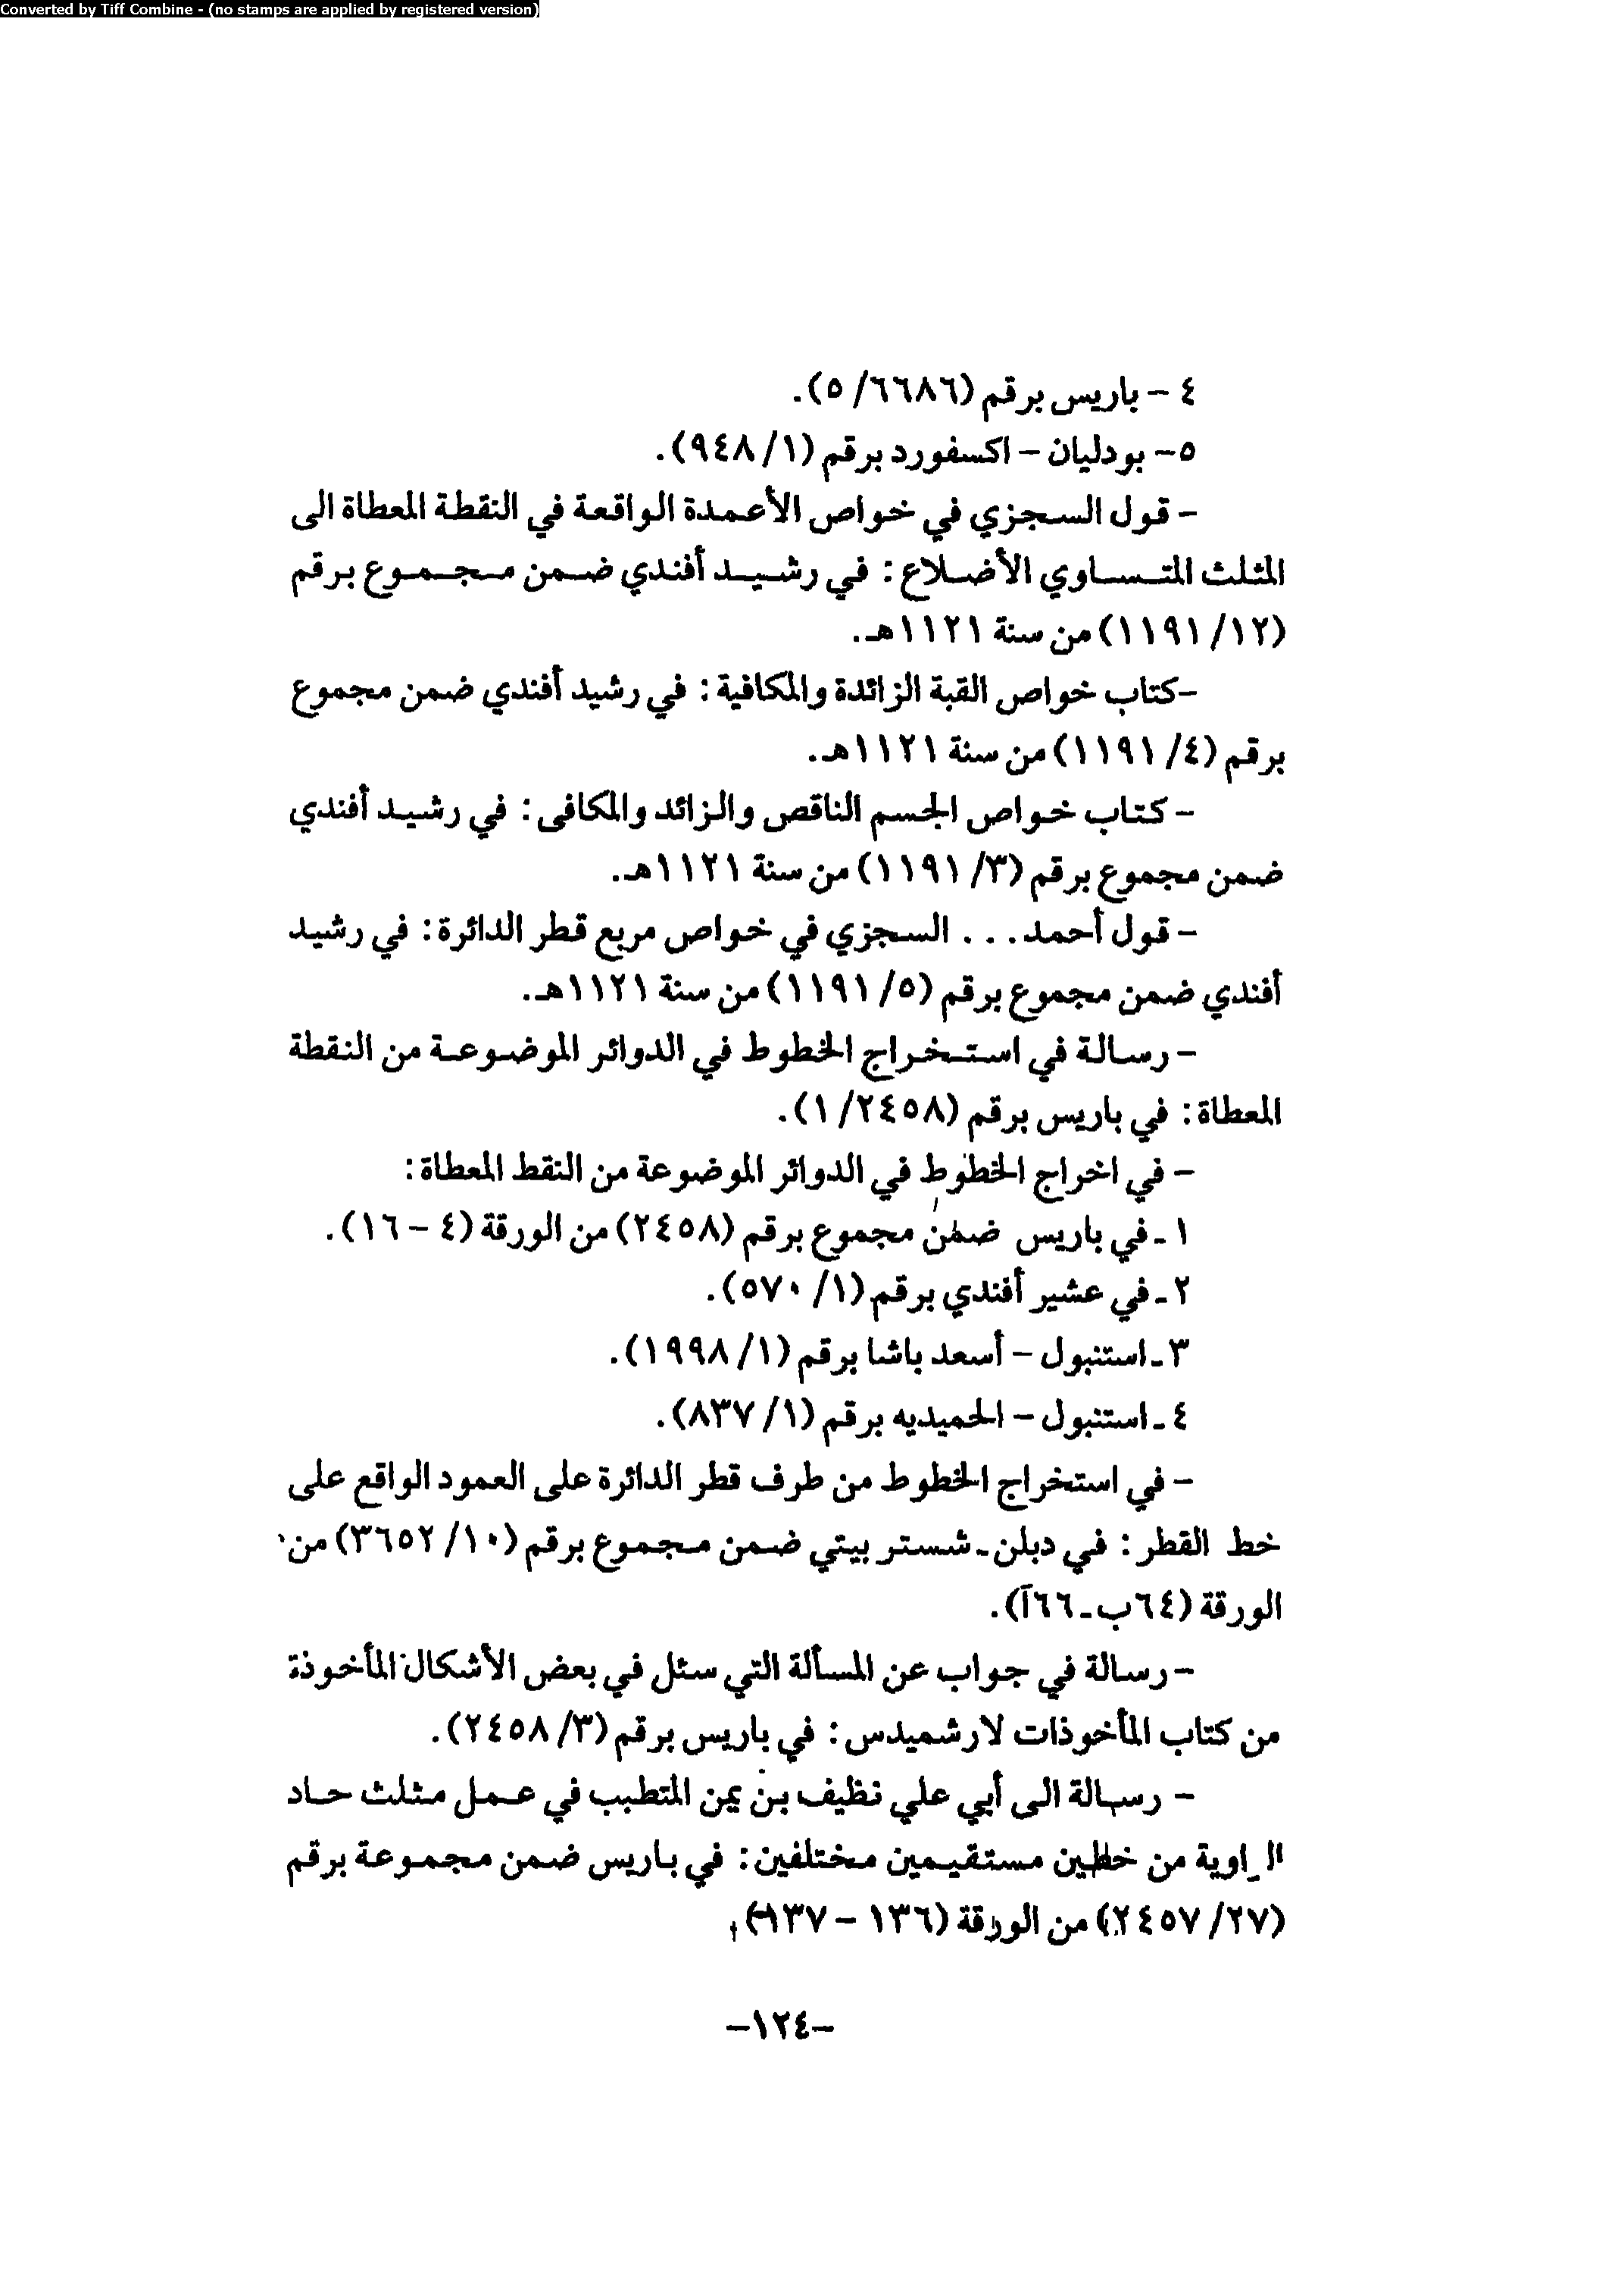 Converted by Tiff Combine - (no stamps are applied by registered version)
٤ - باريس برقم (٦٦٨٦/ ٥).
٥- بودليان - اكسفورد برقم (١/ ٩٤٨).
- قول السجزي في خواص الأعمدة الواقعة في النقطة المعطاة الى
المثلث المتساوي الأضلاع: في رشيد أفندي ضمن مجموع برقم
(١٢/ ١١٩١) من سنة ١١٢١هـ.
-كتاب خواص القبة الزائدة والمكافية: في رشيد أفندي ضمن مجموع
برقم (٤/ ١١٩١) من سنة ١١٢١هـ.
- كتاب خواص الجسم الناقص والزائد والمكافى: في رشيد أفندي
ضمن مجموع برقم (٣/ ١١٩١) من سنة ١١٢١هـ.
- قول أحمد... السجزي في خواص مربع قطر الدائرة: في رشيد
أفندي ضمن مجموع برقم (٥/ ١١٩١) من سنة ١١٢١هـ.
- رسالة في استخراج الخطوط في الدوائر الموضوعة من النقطة
المعطاة: في باريس برقم (٢٤٥٨/ ١).
- في اخراج الخطوط في الدوائر الموضوعة من النقط المعطاة:
١ ـ في باريس ضمن مجموع برقم (٢٤٥٨) من الورقة (٤ - ١٦).
٢ ـ في عشير أفندي برقم (١/ ٥٧٠).
٣ ـ استنبول - أسعد باشا برقم (١/ ١٩٩٨).
٤ ـ استنبول - الحميديه برقم (١/ ٨٣٧).
- في استخراج الخطوط من طرف قطر الدائرة على العمود الواقع على
خط القطر: في دبلن ـ شستر بيتي ضمن مجموع برقم (١٠/ ٣٦٥٢) من
الورقة (٦٤ب ـ ٦٦آ).
- رسالة في جواب عن المسألة التي سئل في بعض الأشكال المأخوذة
من كتاب المأخوذات لارشميدس: في باريس برقم (٣/ ٢٤٥٨).
- رسالة الى أبي علي نظيف بن يمن المتطبب في عمل مثلث حاد
الزاوية من خطين مستقيمين مختلفين: في باريس ضمن مجموعة برقم
(٢٧/ ٢٤٥٧) من الورقة (١٣٦ - ١٣٧).
-١٢٤-